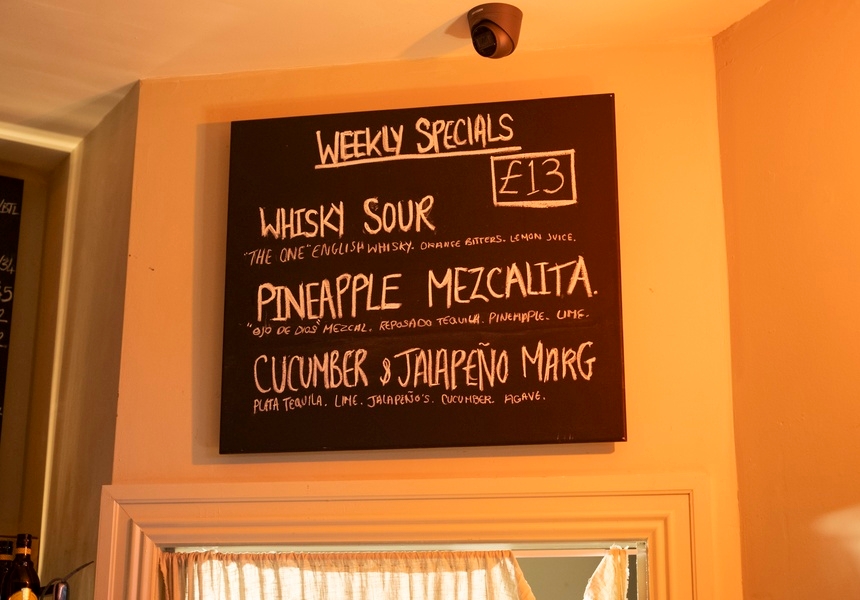 WEEKLY SPECIALS
£13
WHISKY SOUR
"THE ONE" ENGLISH WHISKY. ORANGE BITTERS. LEMON JUICE.
PINEAPPLE MEZCALITA.
"OJO DE DIOS" MEZCAL. REPOSADO TEQUILA. PINEAPPLE. LIME.
CUCUMBER & JALAPEÑO MARG
PLATA TEQUILA. LIME. JALAPEÑO'S. CUCUMBER. AGAVE.